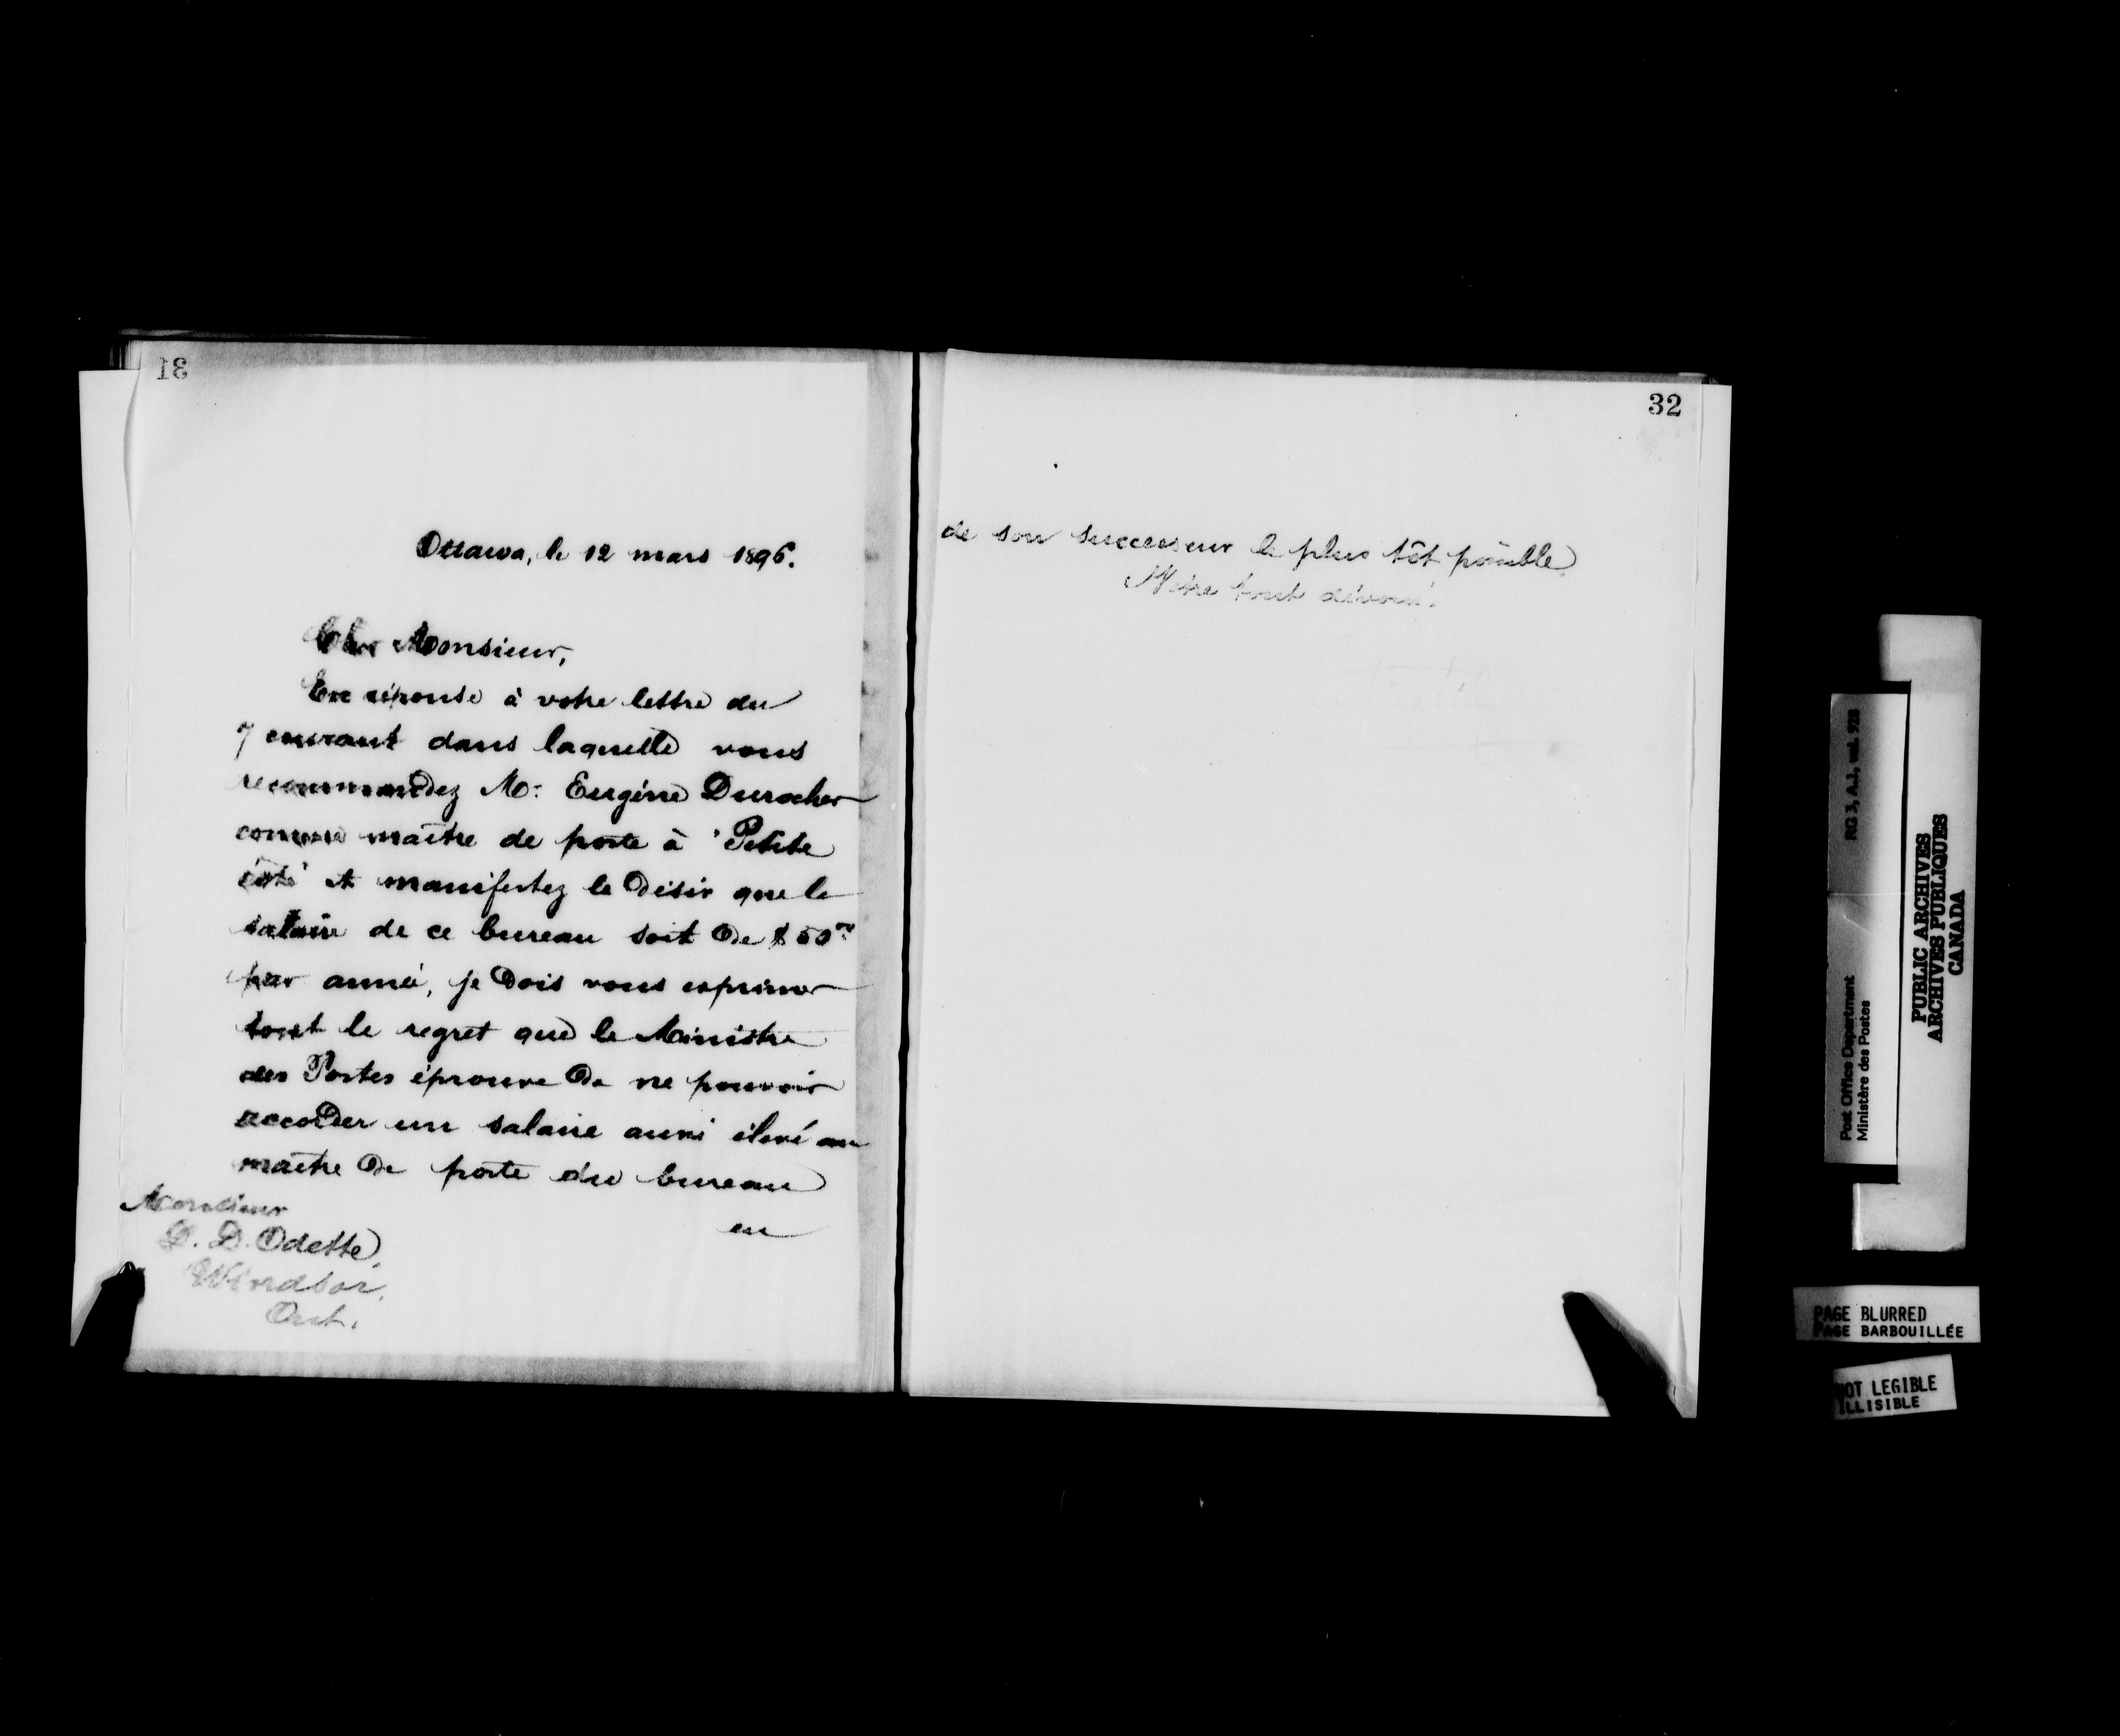 31
Ottawa, le 12 mars 1896.
Cher Monsieur,
En réponse à votre lettre du
7 courant dans laquelle vous
recommandez Mr. Eugène Durocher
comme maître de poste à "Petite
côté" et manifestez le désir que le
salaire de ce bureau soit de $50
par année, je dois vous exprimer
tout le regret que le Ministre
des Postes éprouve de ne pouvoir
accorder un salaire aussi élevé au
maître de poste du bureau
en
Monsieur
D. Odette,
Windsor,
Ont.
32
de son successeur le plus tôt possible
Votre tout dévoué.
RG 3, A.1, vol. 928
Post Office Department
Ministère des Postes
PUBLIC ARCHIVES
ARCHIVES PUBLIQUES
CANADA
PAGE BLURRED
PAGE BARBOUILLÉE
NOT LEGIBLE
ILLISIBLE